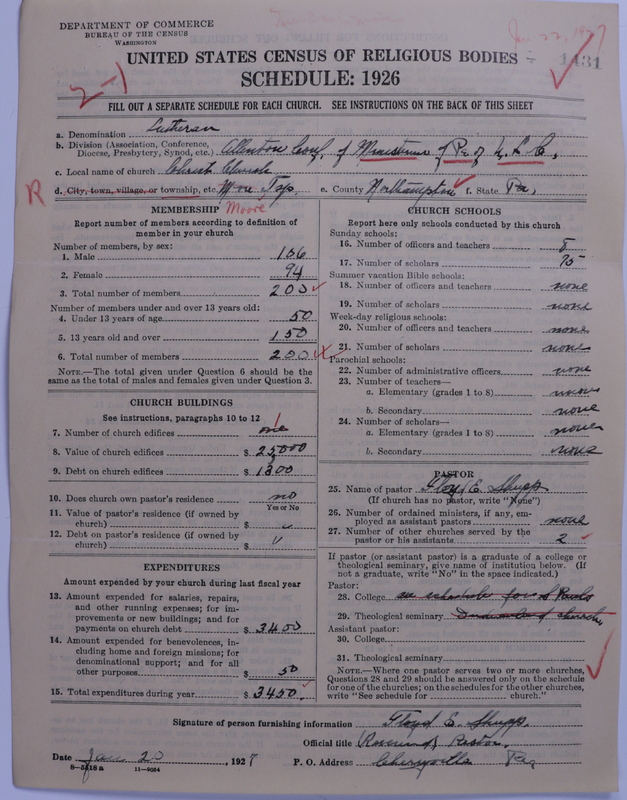 DEPARTMENT OF COMMERCE
BUREAU OF THE CENSUS
WASHINGTON
Jan 22, 1927
UNITED STATES CENSUS OF RELIGIOUS BODIES
1431
SCHEDULE: 1926
2-1
FILL OUT A SEPARATE SCHEDULE FOR EACH CHURCH. SEE INSTRUCTIONS ON THE BACK OF THIS SHEET
a. Denomination Lutheran
b. Division (Association, Conference, Diocese, Presbytery, Synod, etc.) Allentown Conf. of Ministerium of Pa. of U. L. C.
c. Local name of church Christ Church
R
d. City, town, village, or township, etc. Moore Twp. e. County Northampton f. State Pa.
Moore
MEMBERSHIP
Report number of members according to definition of member in your church
Number of members, by sex:
1. Male 106
2. Female 94
3. Total number of members 200
Number of members under and over 13 years old:
4. Under 13 years of age 50
5. 13 years old and over 150
6. Total number of members 200
NOTE.—The total given under Question 6 should be the same as the total of males and females given under Question 3.
CHURCH BUILDINGS
See instructions, paragraphs 10 to 12
7. Number of church edifices one 1
8. Value of church edifices $ 25000
9. Debt on church edifices $ 1300
10. Does church own pastor's residence no
Yes or No
11. Value of pastor's residence (if owned by church) $ "
12. Debt on pastor's residence (if owned by church) $ "
EXPENDITURES
Amount expended by your church during last fiscal year
13. Amount expended for salaries, repairs, and other running expenses; for improvements or new buildings; and for payments on church debt $ 3400
14. Amount expended for benevolences, including home and foreign missions; for denominational support; and for all other purposes $ 50
15. Total expenditures during year $ 3450
CHURCH SCHOOLS
Report here only schools conducted by this church
Sunday schools:
16. Number of officers and teachers 8
17. Number of scholars 75
Summer vacation Bible schools:
18. Number of officers and teachers none
19. Number of scholars none
Week-day religious schools:
20. Number of officers and teachers none
21. Number of scholars none
Parochial schools:
22. Number of administrative officers none
23. Number of teachers—
a. Elementary (grades 1 to 8) none
b. Secondary none
24. Number of scholars—
a. Elementary (grades 1 to 8) none
b. Secondary none
PASTOR
25. Name of pastor Floyd E. Shupp
(If church has no pastor, write "None")
26. Number of ordained ministers, if any, employed as assistant pastors none
27. Number of other churches served by the pastor or his assistants 2
If pastor (or assistant pastor) is a graduate of a college or theological seminary, give name of institution below. (If not a graduate, write "No" in the space indicated.)
Pastor:
28. College see schedule for St Pauls
29. Theological seminary
Assistant pastor:
30. College
31. Theological seminary
NOTE.—Where one pastor serves two or more churches, Questions 28 and 29 should be answered only on the schedule for one of the churches; on the schedules for the other churches, write "See schedule for church."
Signature of person furnishing information Floyd E. Shupp
Official title Pastor.
Date Jan 20, 1927 P. O. Address Cherryville Pa
8-5518 a 11-9064